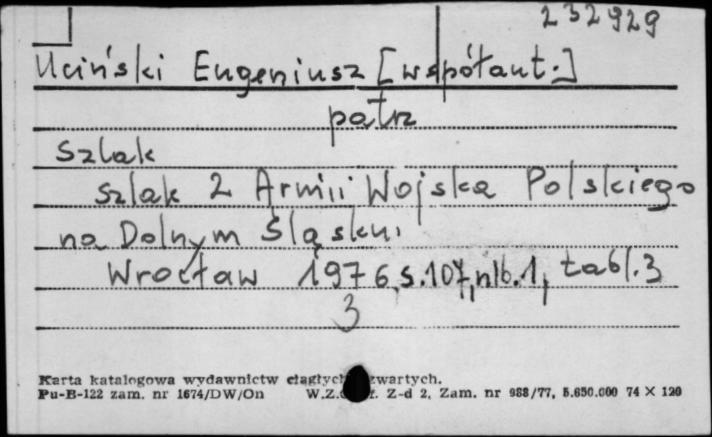 232929
Uciński Eugeniusz [współaut.]
patrz
Szlak
Szlak 2 Armii Wojska Polskiego
na Dolnym Śląsku
Wrocław 1976, s. 107, nlb. 1, tabl. 3
3
Karta katalogowa wydawnictw ciągłych zwartych.
Pu-B-122 zam. nr 1674/DW/On W.Z. Z-d 2, Zam. nr 988/77, 5.650.000 74 × 120